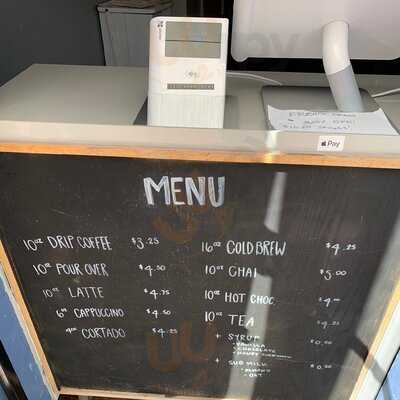 Pay
MENU
10oz DRIP COFFEE $3.25
10oz POUR OVER $4.50
10oz LATTE $4.75
6oz CAPPUCCINO $4.50
4oz CORTADO $4.25
16oz COLD BREW $4.25
10oz CHAI $5.00
10oz HOT CHOC
10oz TEA
+ SYRUP
• VANILLA
• CHOCOLATE
+ SUB MILK
• ALMOND
• OAT